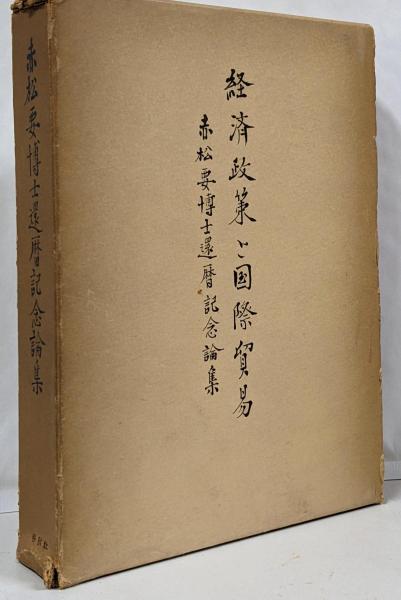 経済政策と国際貿易
赤松要博士還暦記念論集
赤松要博士還暦記念論集
春秋社